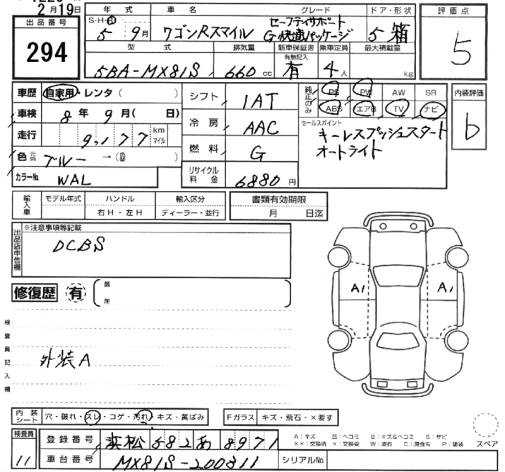 2月19日
出品番号
294
年式
車名
グレード
ドア・形状
評価点
S・H・R
5年9月
ワゴンRスマイル
セーフティサポート
G快適パッケージ
5箱
5
型式
排気量
新車保証書
乗車定員
最大積載量
有無記入
5BA-MX81S
660cc
有
4人
kg
車歴
自家用・レンタ( )
シフト
1AT
純正のみ
PS PW AW SR
ABS エアB TV ナビ
内装評価
b
車検
8年9月( 日)
セールスポイント
キーレスプッシュスタート
オートライト
冷房
AAC
走行
9,177
km
マイル
燃料
G
色
ブルー→( )
リサイクル料金
6880円
カラーNo.
WAL
輸入車
モデル年式
ハンドル
輸入区分
書類有効期限
右H・左H
ディーラー・並行
月 日迄
※注意事項等記載
出品店申告欄
DCBS
修復歴
有
A1
A1
検査員記入欄
外装A
内装シート
穴・破れ・スレ・コゲ・汚れ・キズ・黄ばみ
Fガラス
キズ・飛石・×要す
検査員
11
登録番号
浜松582あ8971
スペア
車台番号
MX81S-200811
シリアルNo.